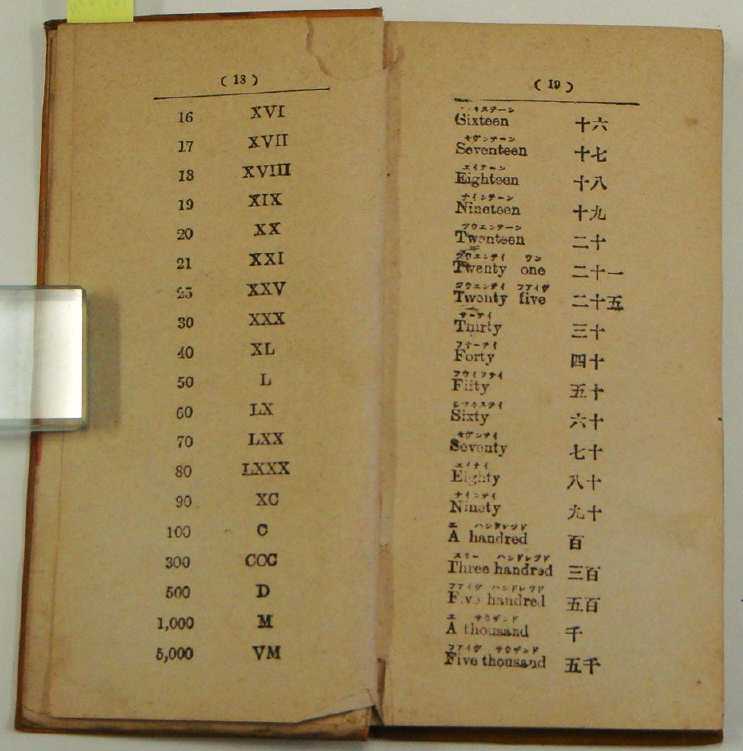 ( 18 )
16 XVI
17 XVII
18 XVIII
19 XIX
20 XX
21 XXI
25 XXV
30 XXX
40 XL
50 L
60 LX
70 LXX
80 LXXX
90 XC
100 C
300 COC
500 D
1,000 M
5,000 VM
( 19 )
Sixteen 十六
セヴンテーン
Seventeen 十七
エイテーン
Eighteen 十八
ナインテーン
Nineteen 十九
ツウエンテーン
Twenteen 二十
ツウエンテイ ワン
Twenty one 二十一
ツウエンテイ フアイヴ
Twenty five 二十五
サーテイ
Thirty 三十
フオーテイ
Forty 四十
フウイフテイ
Fifty 五十
Sixty 六十
セヴンテイ
Seventy 七十
エイテイ
Eighty 八十
ナインテイ
Ninety 九十
エ ハンドレツド
A handred 百
スリー ハンドレツド
Three handred 三百
フアイヴ ハンドレツド
Five handred 五百
エ サウザンド
A thousand 千
フアイヴ サウザンド
Five thousand 五千